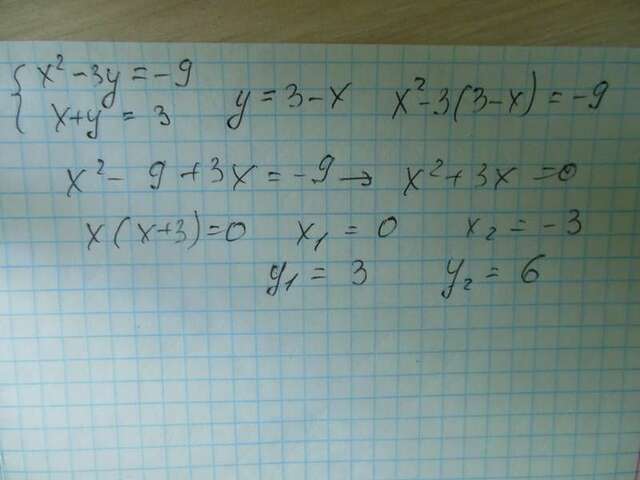 { x² - 3y = -9
x + y = 3   y = 3 - x   x² - 3(3 - x) = -9
x² - 9 + 3x = -9 → x² + 3x = 0
x(x + 3) = 0   x₁ = 0   x₂ = -3
y₁ = 3   y₂ = 6